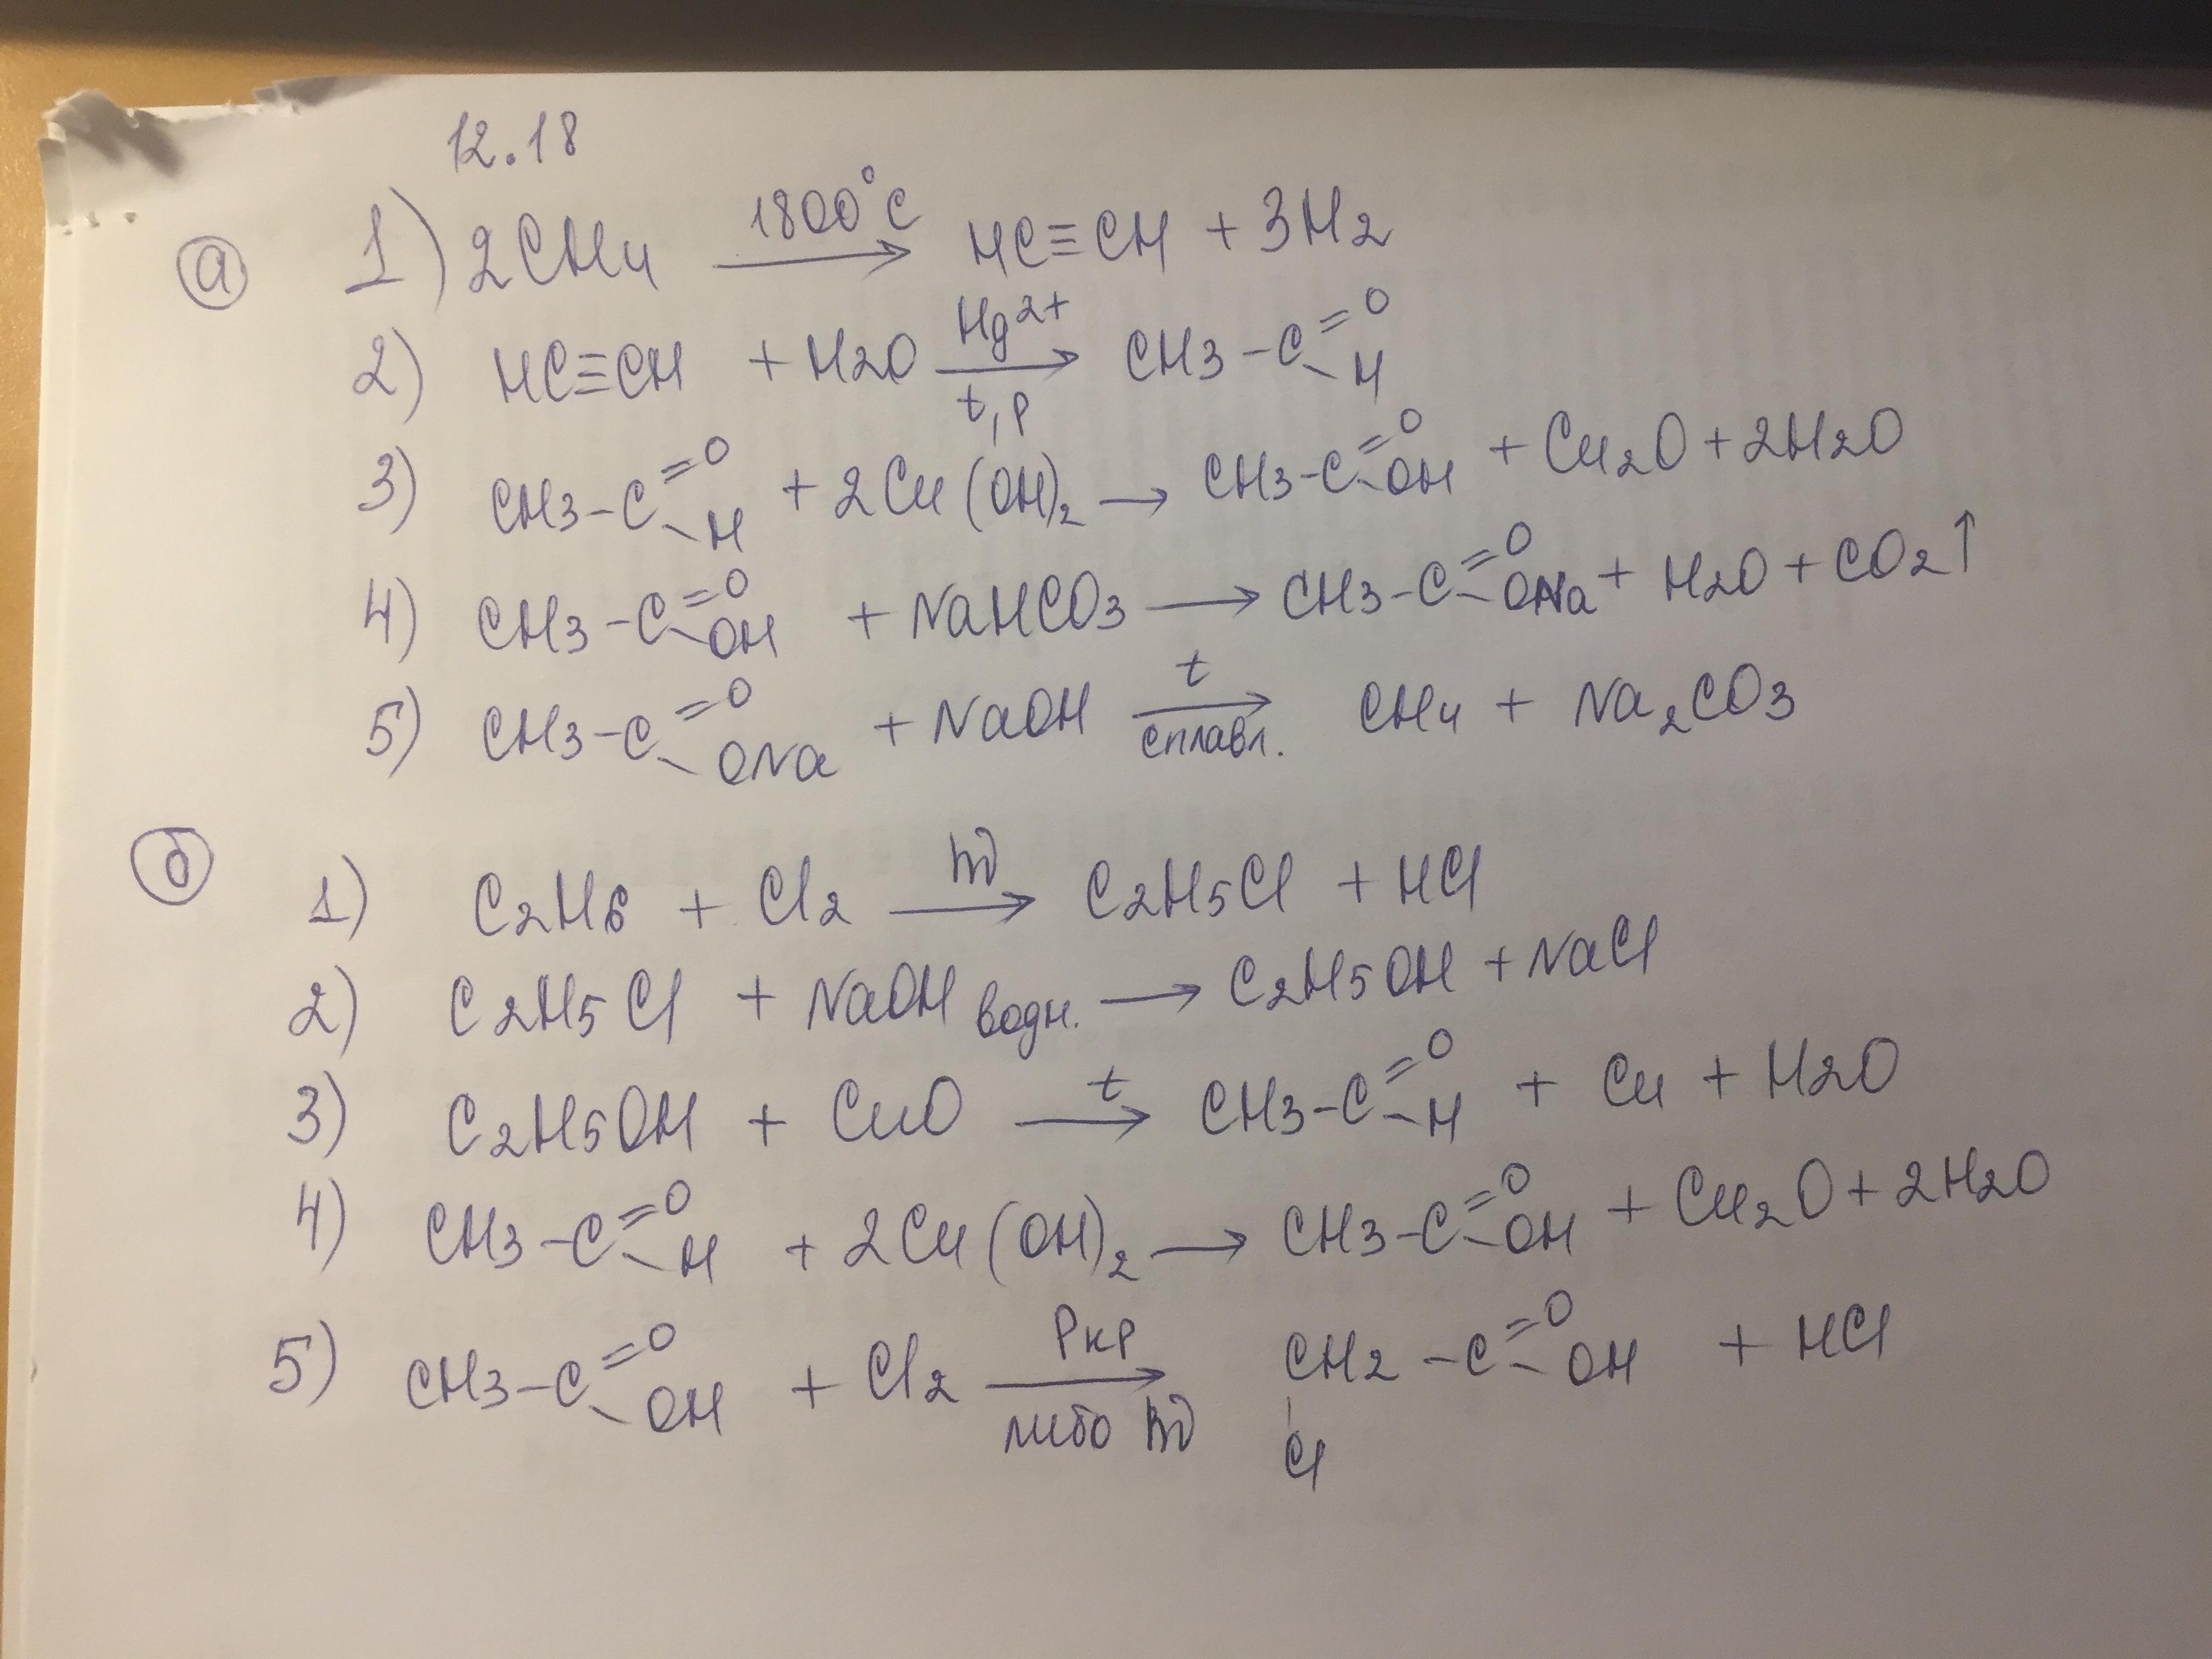 12.18
а 1) 2CH4 1800°C → HC≡CH + 3H2
2) HC≡CH + H2O Hg2+ → t, p CH3-C=O-H
3) CH3-C=O-H + 2Cu(OH)2 → CH3-C=O-OH + Cu2O + 2H2O
4) CH3-C=O-OH + NaHCO3 → CH3-C=O-ONa + H2O + CO2↑
5) CH3-C=O-ONa + NaOH t → сплавл. CH4 + Na2CO3
б
1) C2H6 + Cl2 hν → C2H5Cl + HCl
2) C2H5Cl + NaOH водн. → C2H5OH + NaCl
3) C2H5OH + CuO t → CH3-C=O-H + Cu + H2O
4) CH3-C=O-H + 2Cu(OH)2 → CH3-C=O-OH + Cu2O + 2H2O
5) CH3-C=O-OH + Cl2 Pкр → либо hν CH2-C=O-OH + HCl
Cl